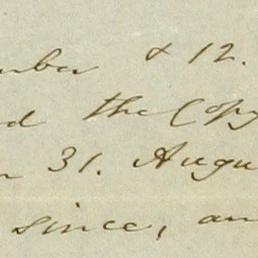 mber & 12.
d the Copy
31. Augu
since, an